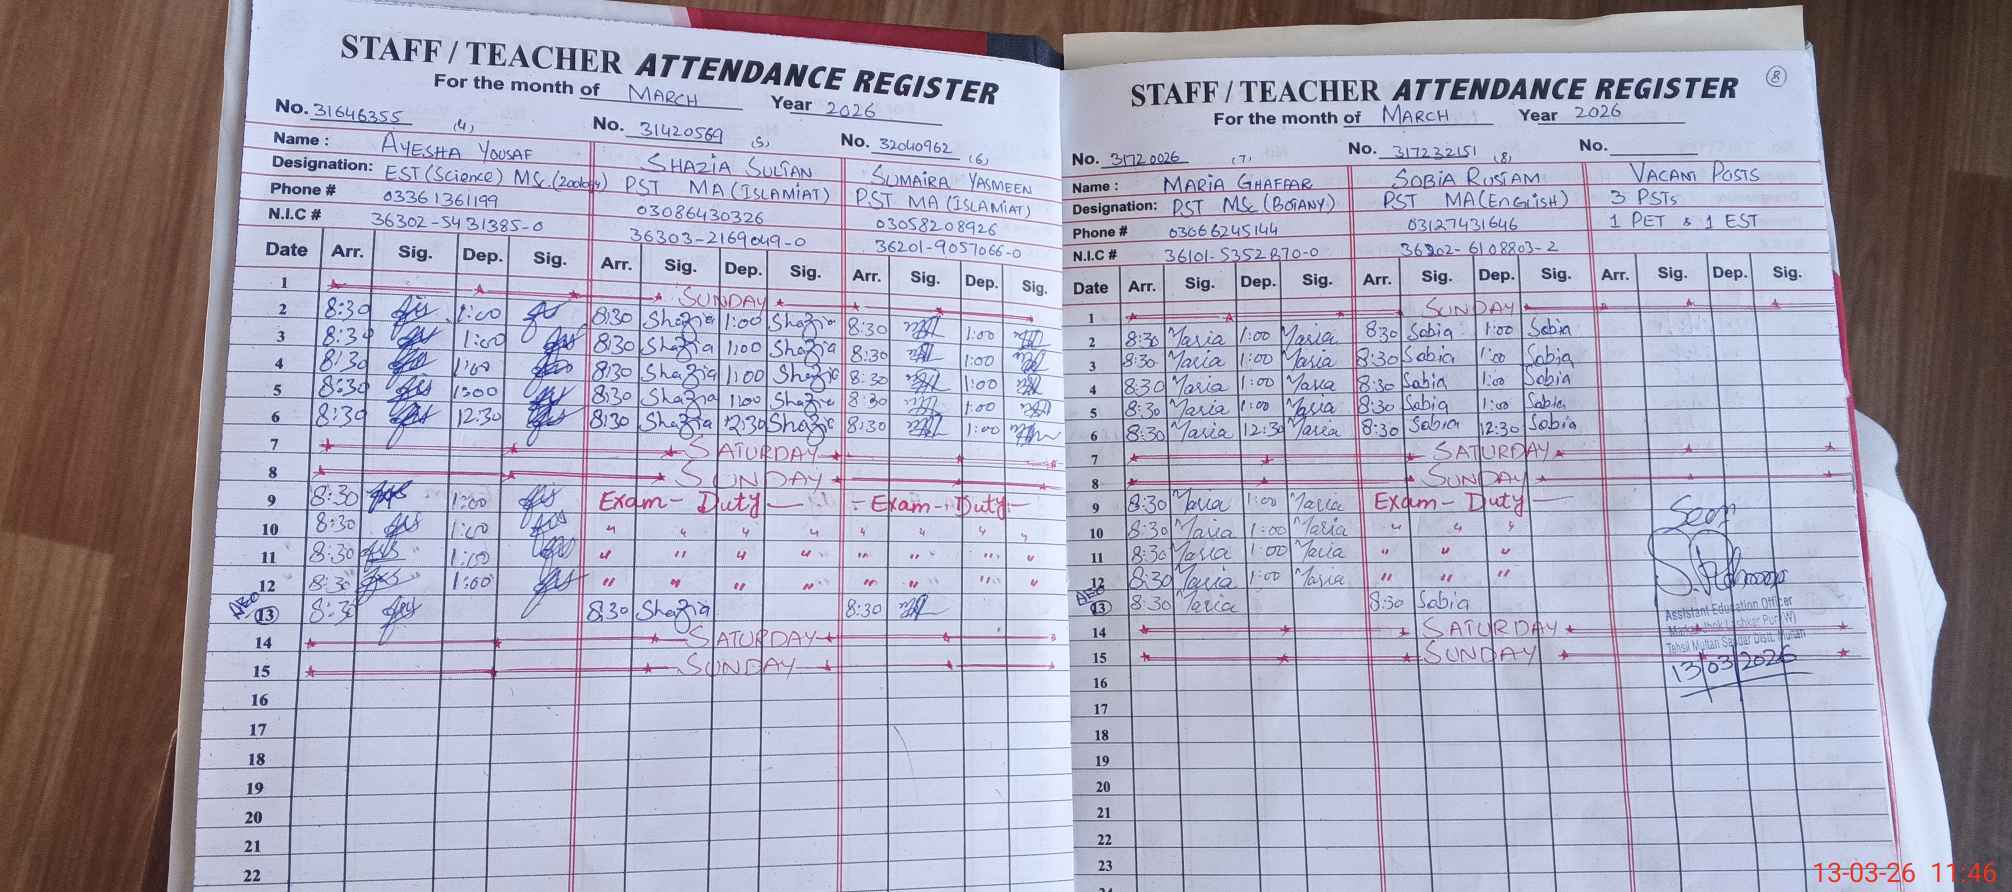 STAFF / TEACHER ATTENDANCE REGISTER
For the month of MARCH Year 2026
No. 31646355 (4) No. 31420569 (5) No. 32040962 (6)
Name : AYESHA YOUSAF SHAZIA SULTAN SUMAIRA YASMEEN
Designation: EST (Science) MSc. (Zoology) PST MA (ISLAMIAT) PST MA (ISLAMIAT)
Phone # 03361361199 03086430326 03058208926
N.I.C # 36302-5431385-0 36303-2169049-0 36201-9057066-0
Date Arr. Sig. Dep. Sig. Arr. Sig. Dep. Sig. Arr. Sig. Dep. Sig.
1 SUNDAY
2 8:30 1:00 8:30 Shazia 1:00 Shazia 8:30 1:00
3 8:30 1:00 8:30 Shazia 1:00 Shazia 8:30 1:00
4 8:30 1:00 8:30 Shazia 1:00 Shazia 8:30 1:00
5 8:30 1:00 8:30 Shazia 1:00 Shazia 8:30 1:00
6 8:30 12:30 8:30 Shazia 12:30 Shazia 8:30 1:00
7 SATURDAY
8 SUNDAY
9 8:30 1:00 Exam - Duty - Exam - Duty -
10 8:30 1:00 " " " " " " " "
11 8:30 1:00 " " " " " " " "
12 8:30 1:00 " " " " " " " "
AEO
13 8:30 8:30 Shazia 8:30
14 SATURDAY
15 SUNDAY
16
17
18
19
20
21
22
8
STAFF / TEACHER ATTENDANCE REGISTER
For the month of MARCH Year 2026
No. 31720026 (7) No. 317232151 (8) No.
Name : MARIA GHAFFAR SOBIA RUSTAM VACANT POSTS
Designation: PST MSc (BOTANY) PST MA (ENGLISH) 3 PSTs
Phone # 03066245144 03127431646 1 PET & 1 EST
N.I.C # 36101-5352870-0 36202-6108803-2
Date Arr. Sig. Dep. Sig. Arr. Sig. Dep. Sig. Arr. Sig. Dep. Sig.
1 SUNDAY
2 8:30 Maria 1:00 Maria 8:30 Sobia 1:00 Sobia
3 8:30 Maria 1:00 Maria 8:30 Sobia 1:00 Sobia
4 8:30 Maria 1:00 Maria 8:30 Sobia 1:00 Sobia
5 8:30 Maria 1:00 Maria 8:30 Sobia 1:00 Sobia
6 8:30 Maria 12:30 Maria 8:30 Sobia 12:30 Sobia
7 SATURDAY
8 SUNDAY
9 8:30 Maria 1:00 Maria Exam - Duty -
10 8:30 Maria 1:00 Maria " " "
11 8:30 Maria 1:00 Maria " " "
12 8:30 Maria 1:00 Maria " " "
AEO
13 8:30 Maria 8:30 Sobia
14 SATURDAY
15 SUNDAY
16
17
18
19
20
21
22
23
24
Seen
Assistant Education Officer
Tehsil Multan Saddar Distt. Multan
13/03/2026
13-03-26 11:46